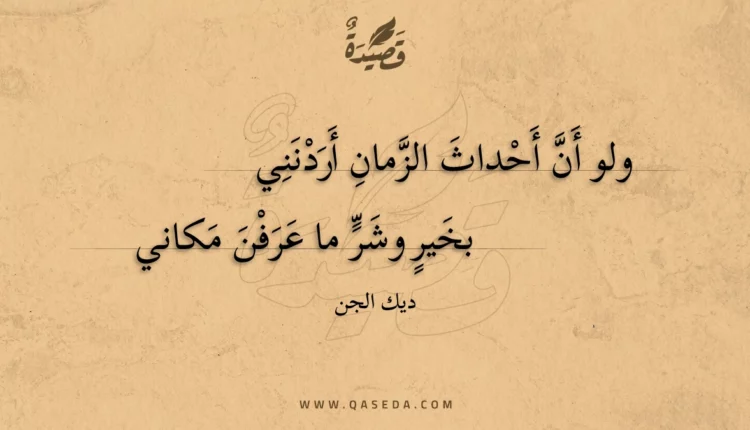 قَصِيْدَةٌ
ولو أَنَّ أَحْداثَ الزَّمانِ أَرَدْنَنِي
بخَيرٍ وشَرٍّ ما عَرَفْنَ مَكاني
ديك الجن
WWW.QASEDA.COM